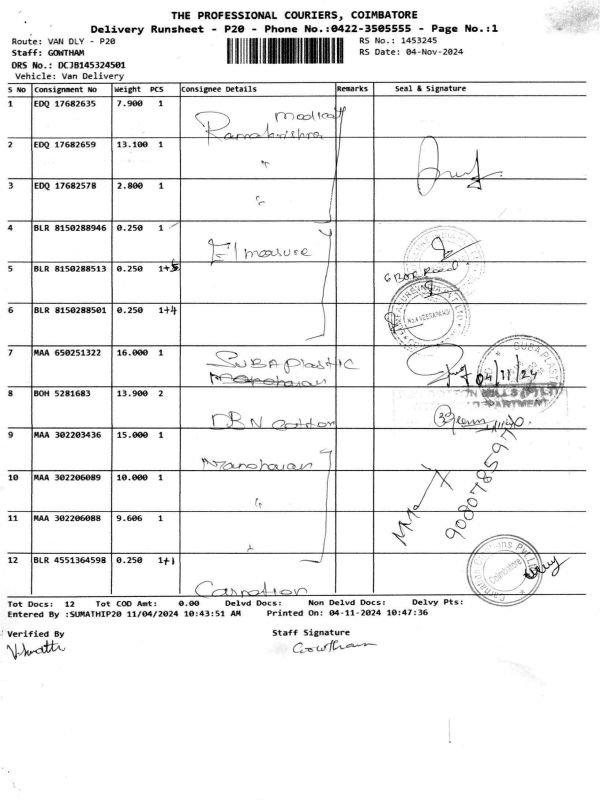 THE PROFESSIONAL COURIERS, COIMBATORE
Delivery Runsheet - P20 - Phone No.:0422-3505555 - Page No.:1
Route: VAN DLY - P20 RS No.: 1453245
Staff: GOWTHAM RS Date: 04-Nov-2024
DRS No.: DCJB145324501
Vehicle: Van Delivery
S No Consignment No Weight PCS Consignee Details Remarks Seal & Signature
1 EDQ 17682635 7.900 1 Medical
Ramakrishna
2 EDQ 17682659 13.100 1 "
3 EDQ 17682578 2.800 1 "
4 BLR 8150288946 0.250 1
5 BLR 8150288513 0.250 1+5
6 BLR 8150288501 0.250 1+4
7 MAA 650251322 16.000 1 SUBA Plastic 04/11/24
Manoharan
8 BOH 5281683 13.900 2 DBN Cotton
9 MAA 302203436 15.000 1 Manoharan
10 MAA 302206089 10.000 1 "
11 MAA 302206088 9.606 1 "
12 BLR 4551364598 0.250 1+1 Carnation Coimbatore
Tot Docs: 12 Tot COD Amt: 0.00 Delvd Docs: Non Delvd Docs: Delvy Pts:
Entered By :SUMATHIP20 11/04/2024 10:43:51 AM Printed On: 04-11-2024 10:47:36
Verified By Staff Signature
Gowtham